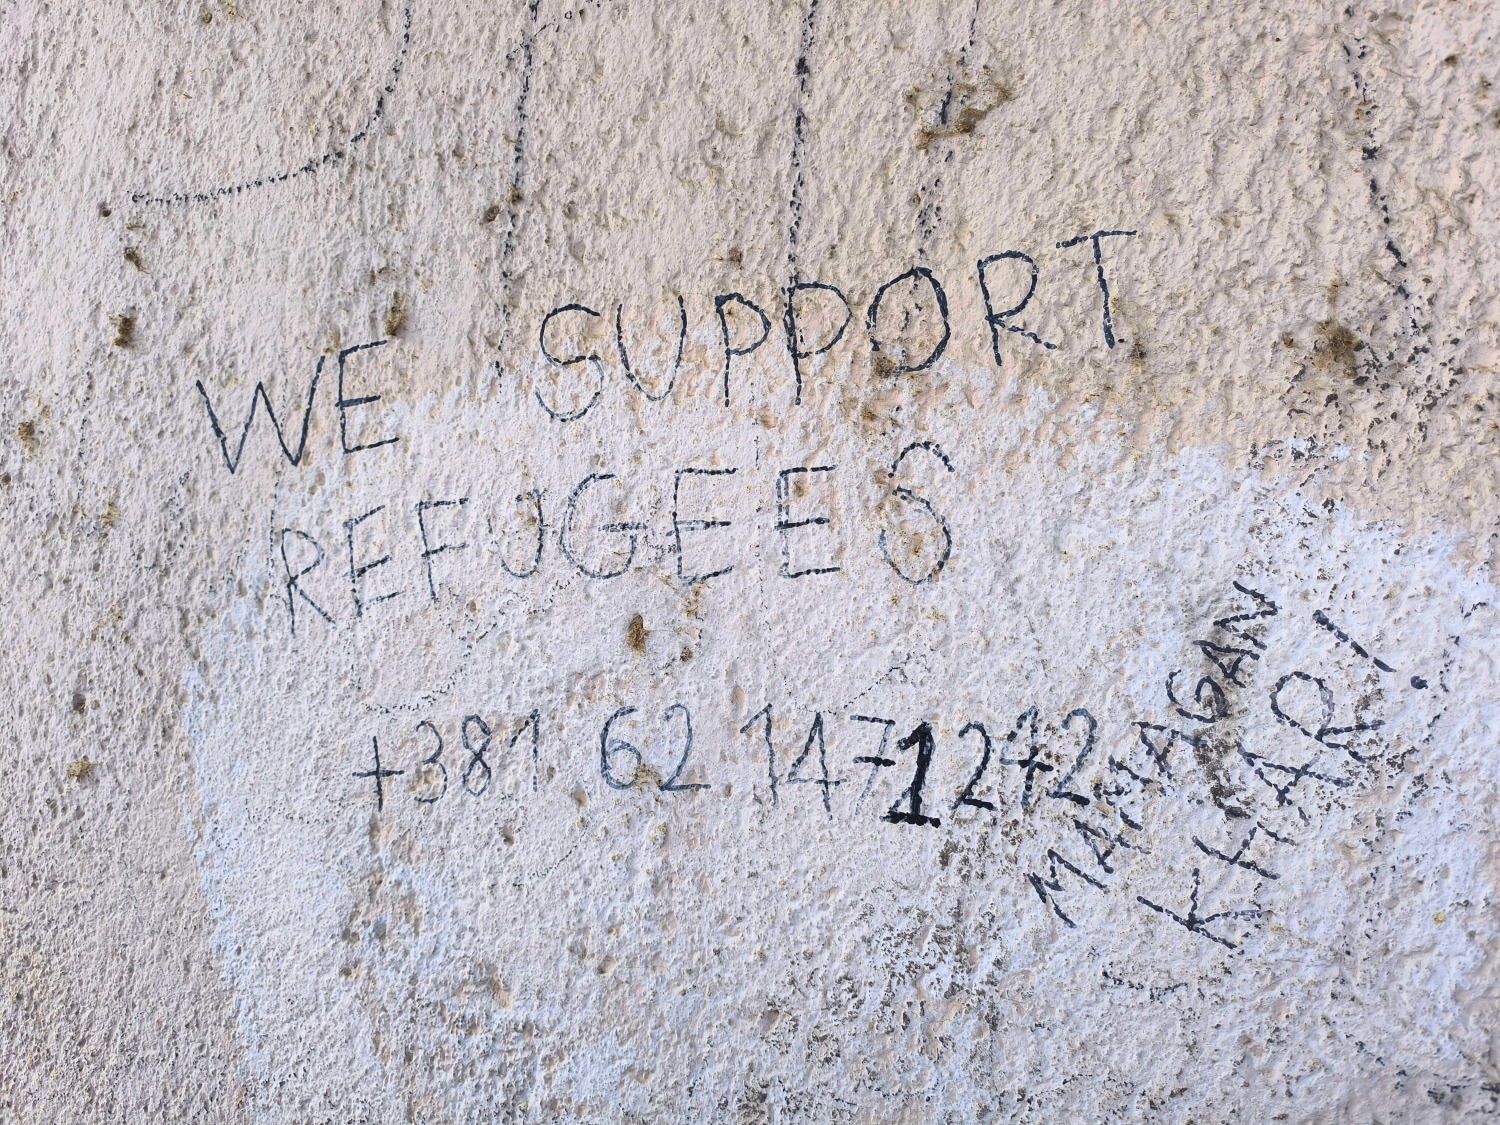 WE SUPPORT
REFUGEES
+381 62 147 1242
KHARI